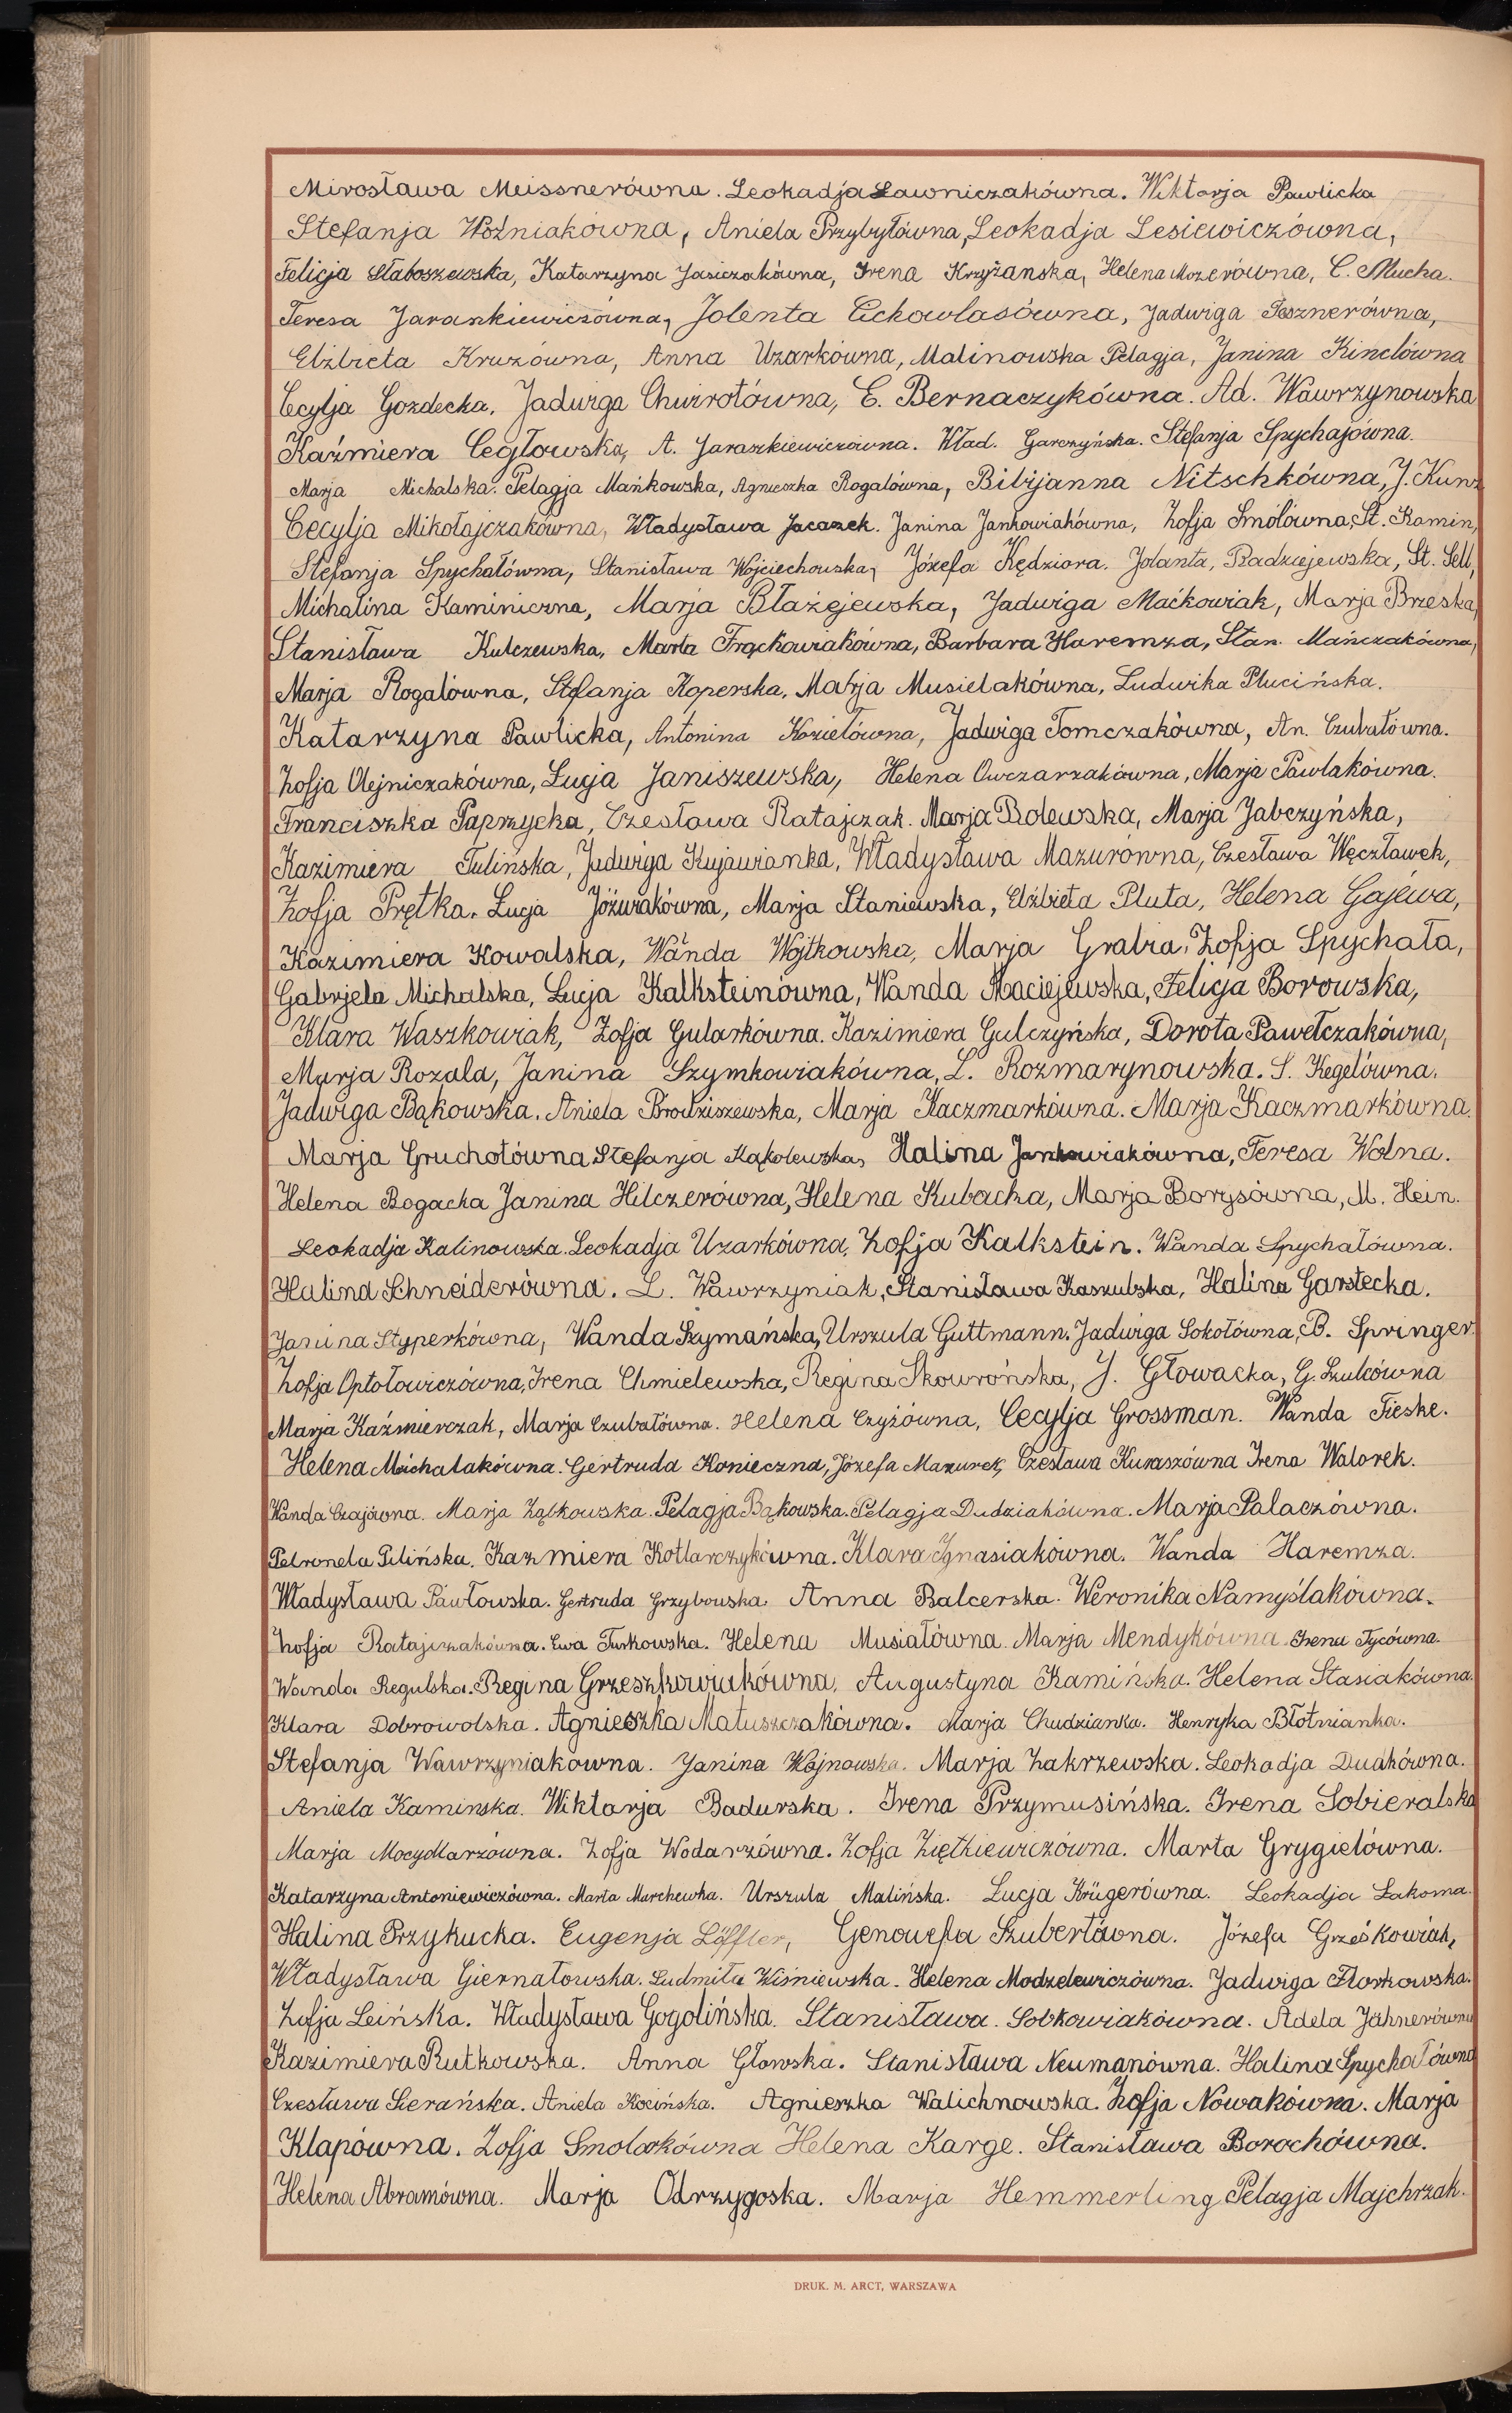 Mirosława Meissnerówna. Leokadja Ławniczakówna. Wiktorja Pawlicka
Stefanja Woźniakówna, Aniela Przybyłówna, Leokadja Lesiewiczówna,
Felicja Słaboszewska, Katarzyna Jasiczakówna, Irena Krzyżanska, Helena Mozerówna, C. Mucha.
Teresa Jarankiewiczówna, Jolenta Cichowlasówna, Jadwiga Tesznerówna,
Elżbieta Kruzówna, Anna Uzarkówna, Malinowska Pelagja, Janina Kinclówna
Cecylja Gozdecka, Jadwiga Chwirotówna, E. Bernaczykówna. Ad. Wawrzynowska
Kaźmiera Cegłowska, A. Jaraszkiewiczówna. Wład. Garczyńska. Stefanja Spychajówna.
Marja Michalska. Pelagja Mańkowska, Agnieszka Rogalówna, Bibijanna Nitschkówna, J. Kunz
Cecylja Mikołajczakówna, Władysława Jacaszek. Janina Jankowiakówna, Zofja Smolówna, St. Kamin,
Stefanja Spychałówna, Stanisława Wojciechowska, Józefa Kędziora. Jolanta, Radziejewska, St. Sell,
Michalina Kaminiczna, Marja Błażejewska, Jadwiga Maćkowiak, Marja Brzeska,
Stanisława Kulczewska, Marta Frąckowiakówna, Barbara Haremza, Stan. Mańczakówna,
Marja Rogalówna, Stefanja Koperska, Marja Musielakówna, Ludwika Plucińska.
Katarzyna Pawlicka, Antonina Koziełówna, Jadwiga Tomczakówna, An. Czubałówna.
Zofja Olejniczakówna, Łucja Janiszewska, Helena Owczarzakówna, Marja Pawlakówna.
Franciszka Paprzycka, Czesława Ratajczak. Marja Rolewska, Marja Jabczyńska,
Kazimiera Tulińska, Jadwiga Kujawianka, Władysława Mazurówna, Czesława Węcławek,
Zofja Prętka. Łucja Jóźwiakówna, Marja Staniewska, Elżbieta Pluta, Helena Gajewa,
Kazimiera Kowalska, Wanda Wojtkowska, Marja Grabia, Zofja Spychała,
Gabrjela Michalska, Łucja Kalksteinówna, Wanda Maciejewska, Felicja Borowska,
Klara Waszkowiak, Zofja Gularkówna. Kazimiera Gulczyńska, Dorota Pawełczakówna,
Marja Rozala, Janina Szymkowiakówna, L. Rozmarynowska. S. Kegelówna.
Jadwiga Bąkowska. Aniela Brodziszewska, Marja Kaczmarkówna. Marja Kaczmarkówna.
Marja Gruchotówna Stefanja Kąkolewska, Halina Jankowiakówna, Teresa Wolna.
Helena Bogacka Janina Hilczerówna, Helena Kubacka, Marja Borysówna, M. Hein.
Leokadja Kalinowska. Leokadja Uzarkówna. Zofja Kalkstein. Wanda Spychałówna.
Halina Schneiderówna. L. Wawrzyniak, Stanisława Kaszubska, Halina Garstecka.
Janina Styperkówna, Wanda Szymańska, Urszula Guttmann. Jadwiga Sokołówna, B. Springer.
Zofja Optołowiczówna, Irena Chmielewska, Regina Skowrońska, J. Głowacka, G. Szulcówna
Marja Kaźmierczak, Marja Czubałówna. Helena Czyżówna, Cecylja Grossman. Wanda Fieske.
Helena Michalakówna. Gertruda Konieczna, Józefa Mazurek, Czesława Kuraszówna Irena Walorek.
Wanda Czajówna. Marja Ząbkowska. Pelagja Bąkowska. Pelagja Dudziakówna. Marja Palaczówna.
Petronela Pilińska. Kazmiera Kotlarczykówna. Klara Ignasiakówna. Wanda Haremza.
Władysława Pawłowska. Gertruda Grzybowska. Anna Balcerska. Weronika Namyślakówna.
Zofja Ratajczakówna. Ewa Turkowska. Helena Musiałówna. Marja Mendykówna. Irena Tycówna.
Wanda Regulska. Regina Grzeszkowiakówna. Augustyna Kamińska. Helena Stasiakówna.
Klara Dobrowolska. Agnieszka Matuszczakówna. Marja Chudzianka. Henryka Błotnianka.
Stefanja Wawrzyniakówna. Janina Wojnowska. Marja Zakrzewska. Leokadja Dudkówna.
Aniela Kaminska. Wiktorja Badurska. Irena Przymusińska. Irena Sobieralska
Marja Mocydlarzówna. Zofja Wodarzówna. Zofja Ziętkiewiczówna. Marta Grygielówna.
Katarzyna Antoniewiczówna. Marta Marchewka. Urszula Malińska. Łucja Krügerówna. Leokadja Łakoma.
Halina Przykucka. Eugenja Löffler, Genowefa Szubertówna. Józefa Grześkowiak,
Władysława Giernatowska. Ludmiła Wiśniewska. Helena Modzelewiczówna. Jadwiga Florkowska.
Zofja Leińska. Władysława Gogolińska. Stanisława. Sobkowiakówna. Adela Jähnerówna
Kazimiera Rutkowska. Anna Głowska. Stanisława Neumanówna. Halina Spychałówna
Czesława Sierańska. Aniela Kocińska. Agnieszka Walichnowska. Zofja Nowakówna. Marja
Klapówna. Zofja Smolarkówna Helena Karge. Stanisława Borochówna.
Helena Abramówna. Marja Odrzygoska. Marja Hemmerling Pelagja Majchrzak.
DRUK. M. ARCT, WARSZAWA